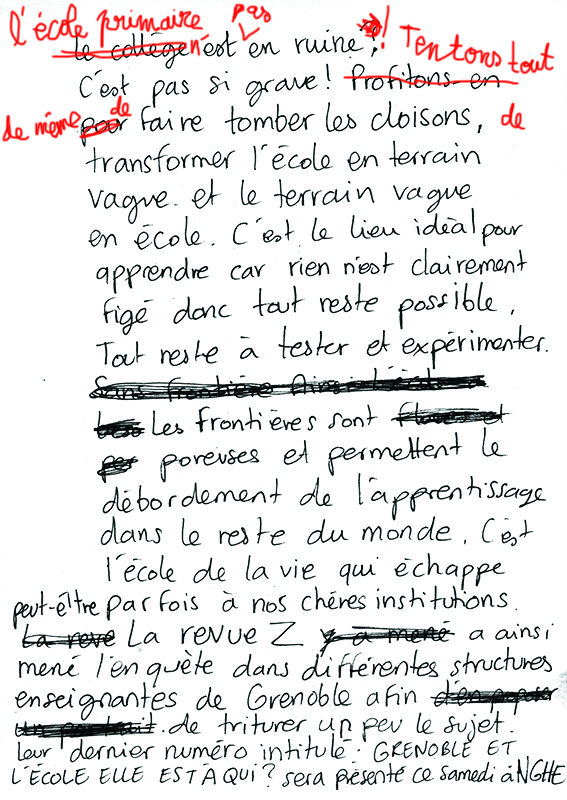 l'école primaire pas
le collège n'est en ruine ? ! Tentons tout
C'est pas si grave ! Profitons en
de même pour de faire tomber les cloisons, de
transformer l'école en terrain
vague. et le terrain vague
en école. C'est le lieu idéal pour
apprendre car rien n'est clairement
figé donc tout reste possible.
Tout reste à tester et expérimenter.
Sans frontière
Les frontières sont
poreuses et permettent le
débordement de l'apprentissage
dans le reste du monde. C'est
l'école de la vie qui échappe
peut-être parfois à nos chères institutions.
La reve La revue Z y a mené a ainsi
mené l'enquête dans différentes structures
enseignantes de Grenoble afin
de triturer un peu le sujet.
leur dernier numéro intitulé : GRENOBLE ET
L'ÉCOLE ELLE EST À QUI ? sera présenté ce samedi à NGHE